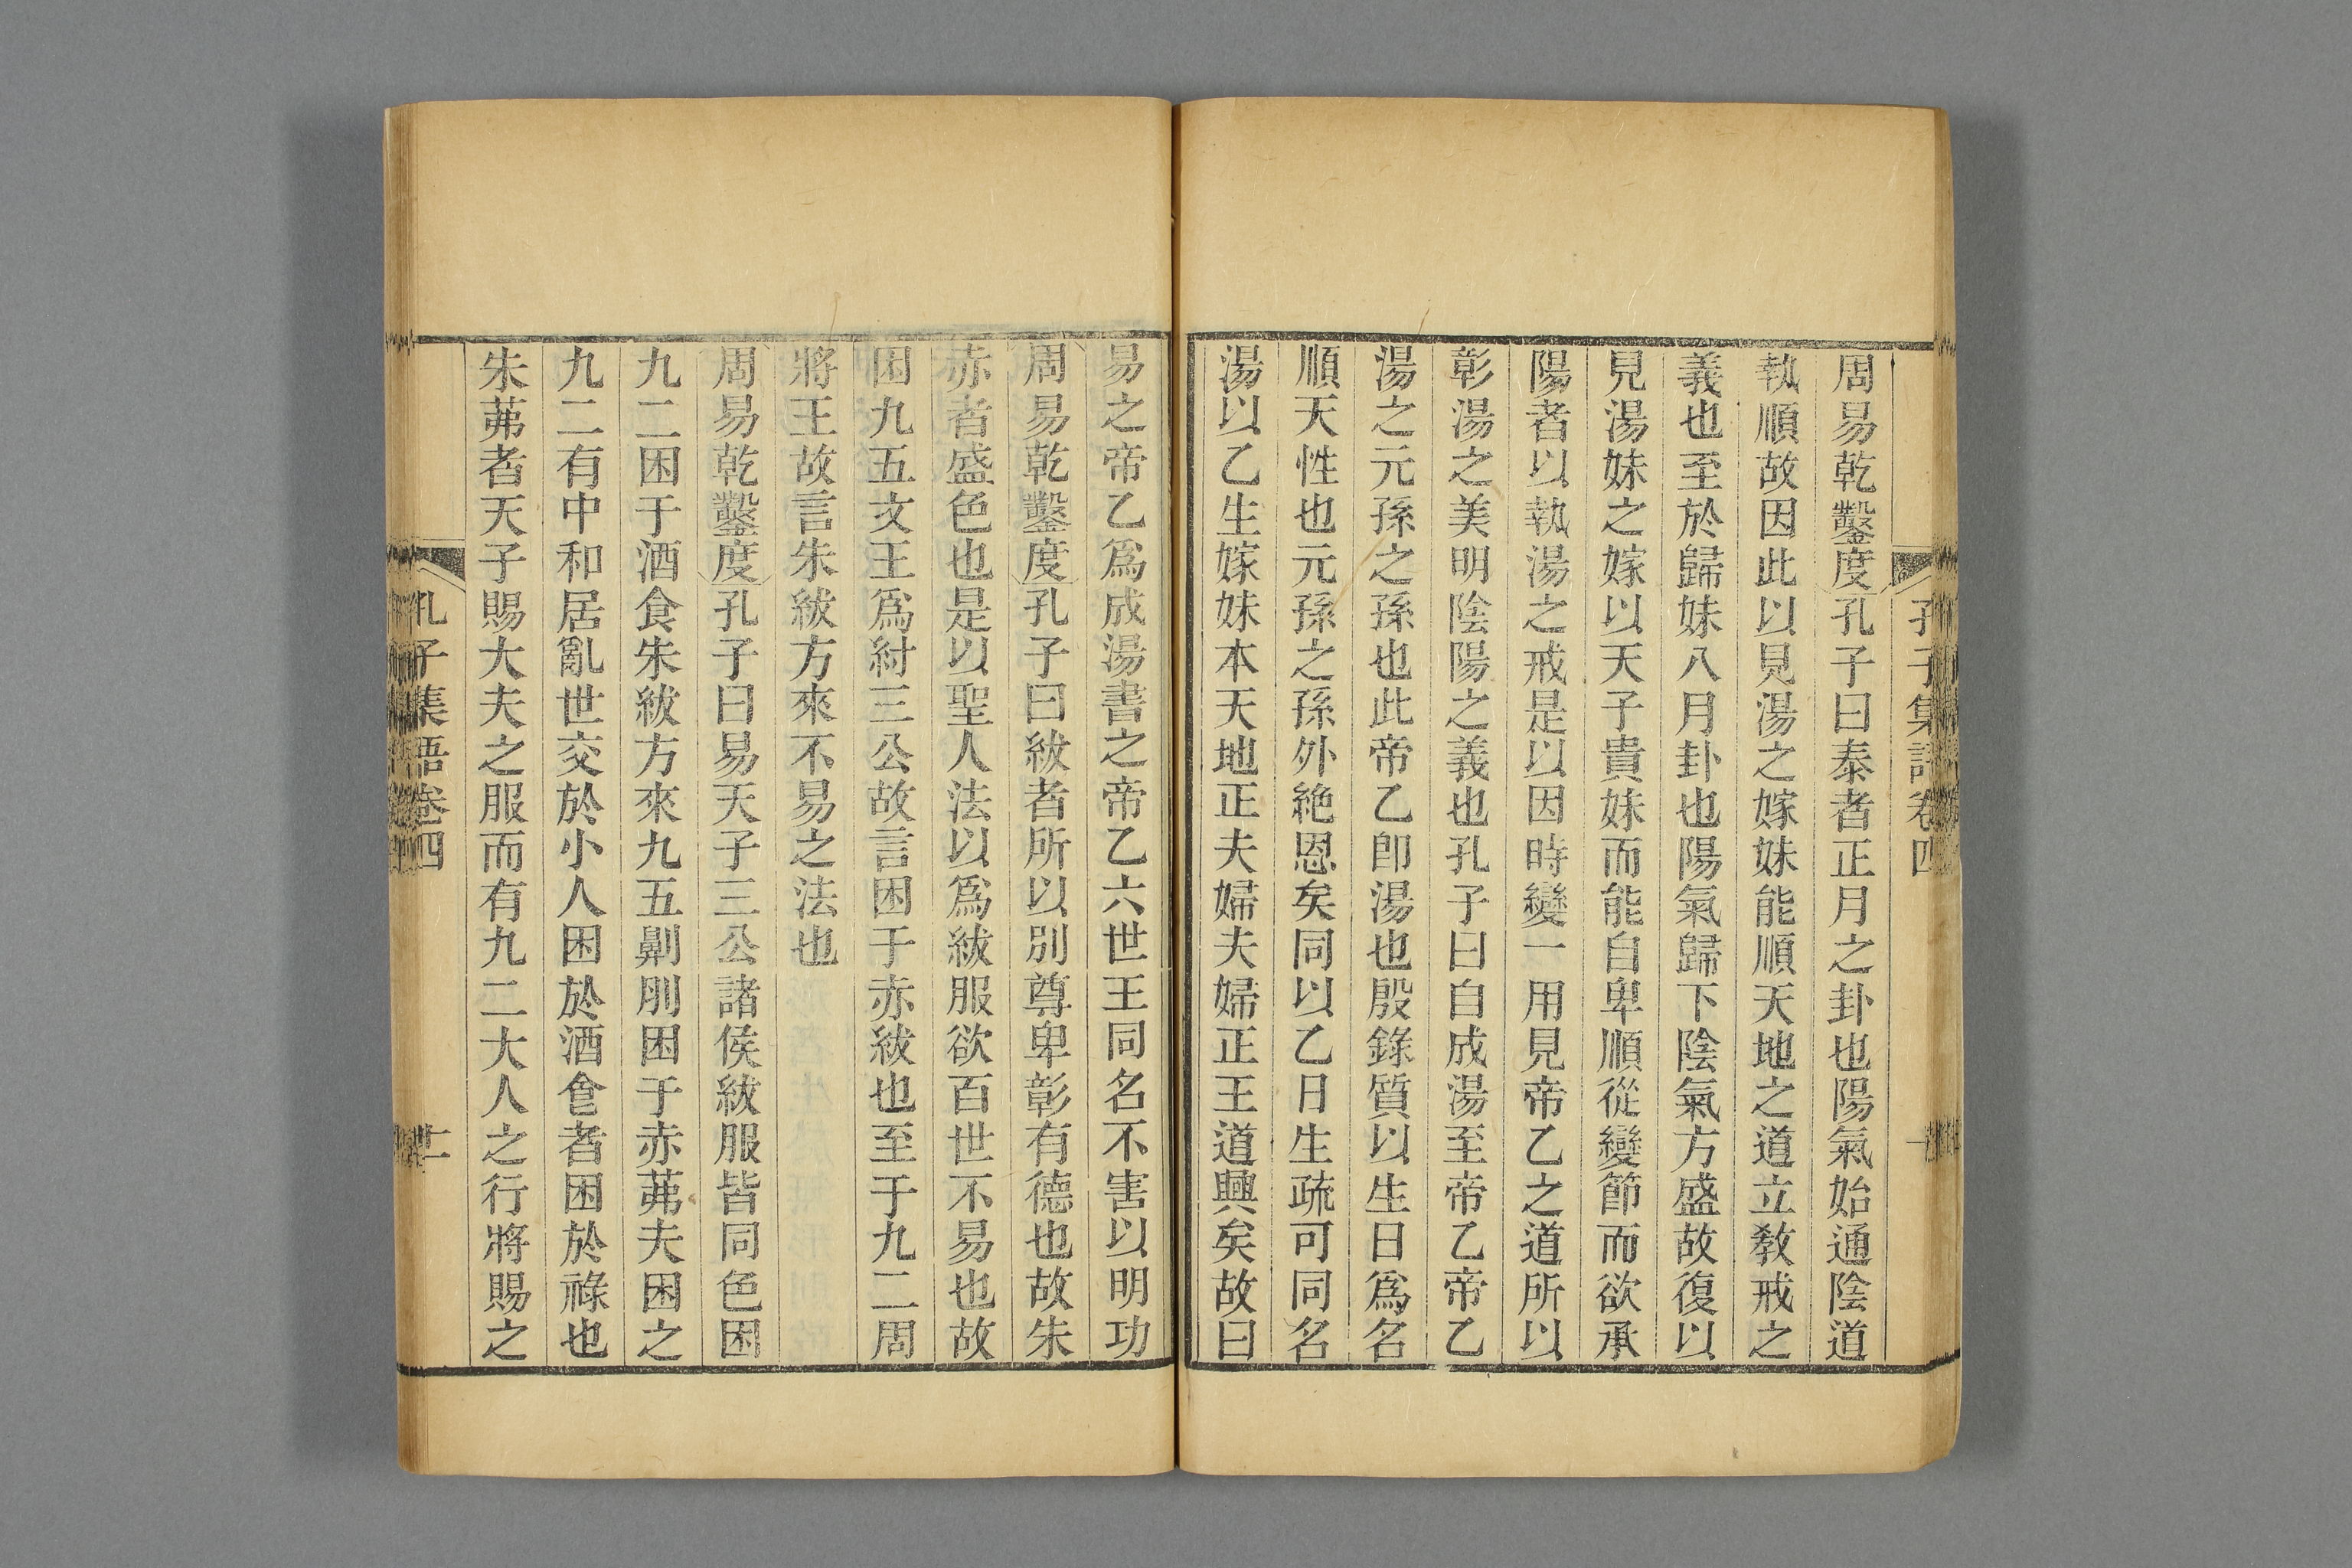 孔子集語卷四
周易乾鑿度孔子曰泰者正月之卦也陽氣始通陰道
執順故因此以見湯之嫁妹能順天地之道立教戒之
義也至於歸妹八月卦也陽氣歸下陰氣方盛故復以
見湯妹之嫁以天子貴妹而能自卑順從變節而欲承
陽者以執湯之戒是以因時變一用見帝乙之道所以
彰湯之美明陰陽之義也孔子曰自成湯至帝乙帝乙
湯之元孫之孫也此帝乙卽湯也殷錄質以生日爲名
順天性也元孫之孫外絕恩矣同以乙日生疏可同名
湯以乙生嫁妹本天地正夫婦夫婦正王道興矣故曰
易之帝乙爲成湯書之帝乙六世王同名不害以明功
周易乾鑿度孔子曰紱者所以別尊卑彰有德也故朱
赤者盛色也是以聖人法以爲紱服欲百世不易也故
困九五文王爲紂三公故言困于赤紱也至于九二周
將王故言朱紱方來不易之法也
周易乾鑿度孔子曰易天子三公諸侯紱服皆同色困
九二困于酒食朱紱方來九五劓刖困于赤茀夫困之
九二有中和居亂世交於小人困於酒食者困於祿也
朱茀者天子賜大夫之服而有九二大人之行將賜之
孔子集語卷四